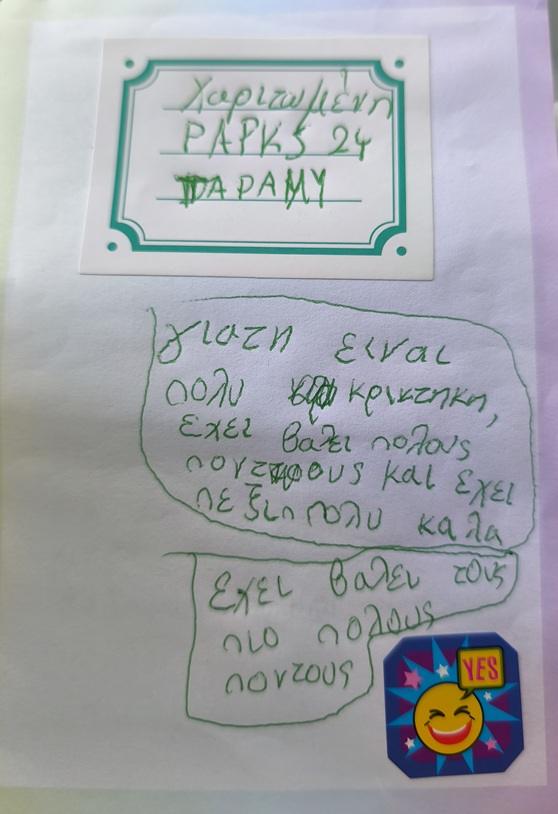 Χαριτωμένη
PAPKS 24
ΠΑΡΑΜΥ
γιατη ειναι
πολυ κρικτηκη,
εχει βαλει πολους
ποντους και εχει
πεξει πολυ καλα
εχει βαλει τους
πιο πολους
ποντους
YES